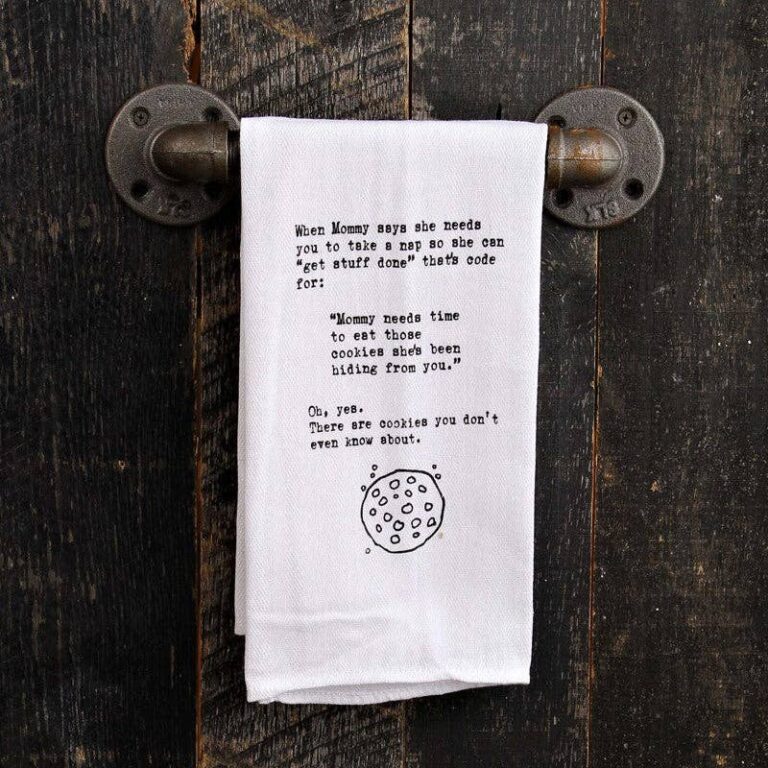 When Mommy says she needs
you to take a nap so she can
“get stuff done” that's code
for:
“Mommy needs time
to eat those
cookies she's been
hiding from you.”
Oh, yes.
There are cookies you don't
even know about.